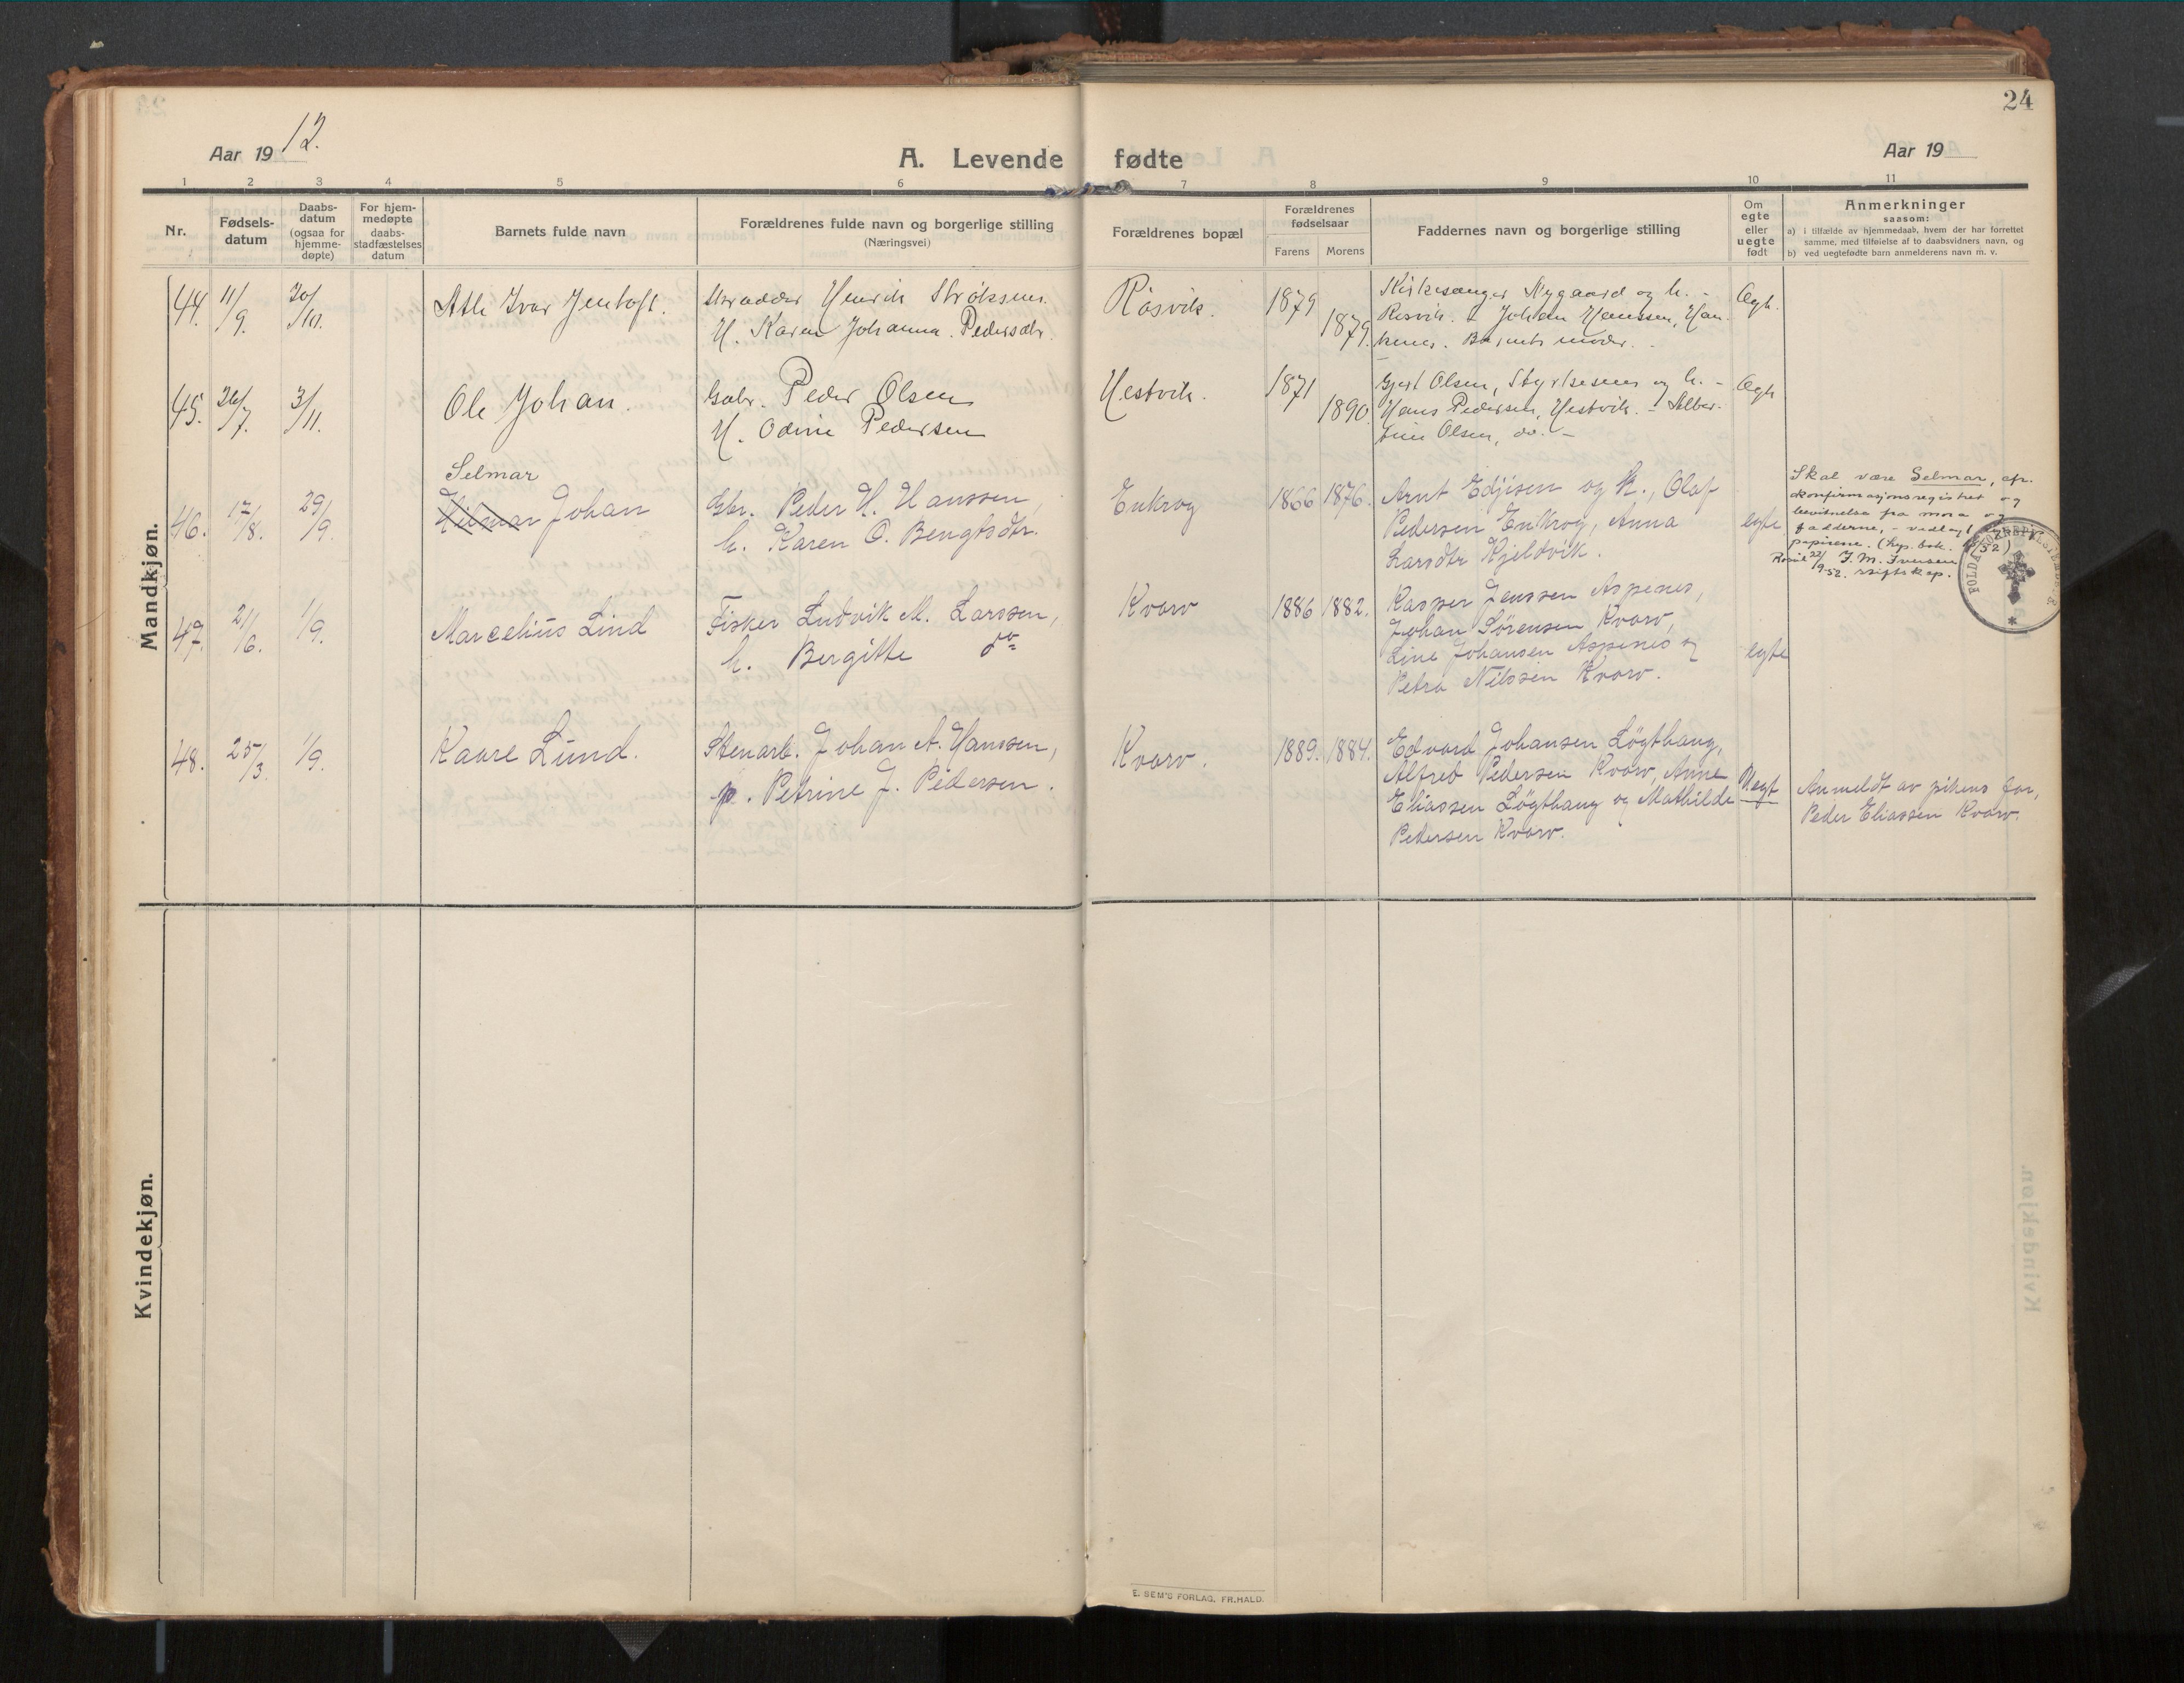 24
Aar 1912.
A. Levende fødte
Aar 19
1 2 3 4 5 6 7 8 9 10 11
Nr.
Fødsels-
datum
Daabs-
datum
(ogsaa for
hjemme-
døpte)
For hjem-
medøpte
daabs-
stadfæstelses
datum
Barnets fulde navn
Forældrenes fulde navn og borgerlige stilling
(Næringsvei)
Forældrenes bopæl
Forældrenes
fødselsaar
Farens Morens
Faddernes navn og borgerlige stilling
Om
egte
eller
uegte
født
Anmerkninger
saasom:
a) i tilfælde av hjemmedaab, hvem der har forrettet
samme, med tilføielse af to daabsvidners navn, og
b) ved uegtefødte barn anmelderens navn m. v.
Mandkjøn.
44. 11/9. 20/10.
Atle Ivar Jentoft.
Skrædder Henrik Strøksnes.
H. Karen Johanna Pedersdtr.
Røsvik.
1879 1879.
Kirkesanger Nygaard og h. -
Røsvik. - Johan Hanssen,
Barnets moder. -
Ægte.
45. 26/7. 3/11.
Ole Johan.
Gabr. Peder Olsen
H. Odine Pedersen
Hestvik.
1871 1890.
Gjert Olsen, Styrkesnes og h. -
Hans Pedersen, Hestvik. - Alber-
tine Olsen, do. -
Ægte
46. 17/8. 29/9.
Selmar
Hilmar Johan
Gbr. Peder H. Hanssen,
h. Karen O. Bengtsdtr.
Enkrog
1866 1876.
Arnt Edjisen og k., Olaf
Pedersen Enkrog, Anna
Larsdtr Kjeldvik.
egte
Skal være Selmar, efr.
konfirmasjonsregistret og
bevitnelse fra mora og
fadderne, - vedlagt
papirene. (kop. bok. /52)
Røsvik 22/9-52. J. M. Iversen
stiftskap.
47. 21/6. 1/9.
Marcelius Lind
Fisker Ludvik M. Larssen,
h. Bergitte do
Kvarv
1886 1882.
Kasper Jenssen Aspenes,
Johan Sørensen Kvarv,
Line Johansen Aspenes og
Petra Nilssen Kvarv.
egte
48. 25/3. 1/9.
Kaare Lund.
Stenarb. Johan A. Hanssen,
p. Petrine J. Pedersen.
Kvarv.
1889. 1884.
Edvard Johansen Løgthaug,
Alfred Pedersen Kvarv, Anne
Eliassen Løgthaug og Mathilde
Pedersen Kvarv.
Uegt
Anmeldt av pikens far,
Peder Eliassen Kvarv.
Kvindekjøn.
E. SEM'S FORLAG, FR.HALD.